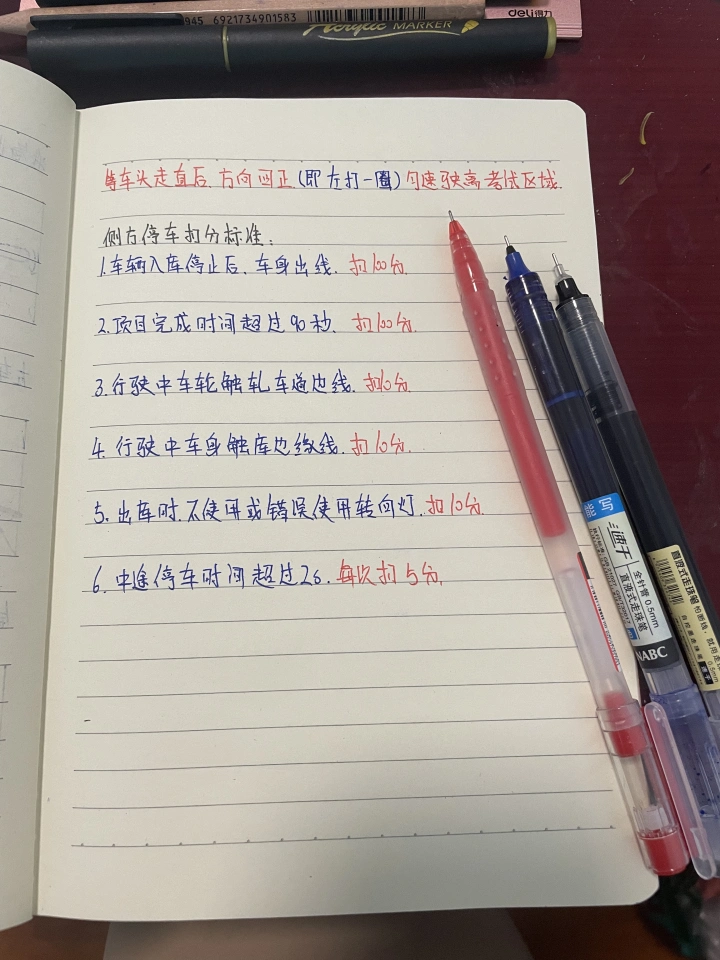 945 6921734901583
deli得力
Acrylic MARKER
等车头走直后.方向回正(即左打一圈)匀速驶离考试区域.
侧方停车扣分标准:
1.车辆入库停止后、车身出线. 扣100分.
2.项目完成时间超过90秒、 扣100分.
3.行驶中车轮触轧车道边线. 扣10分.
4.行驶中车身触库边缘线. 扣10分.
5.出车时.不使用或错误使用转向灯.扣10分.
6.中途停车时间超过2s.每次扣5分.
速干
全针管 0.5mm
直液式走珠笔
NABC
直液式走珠笔
0.5mm